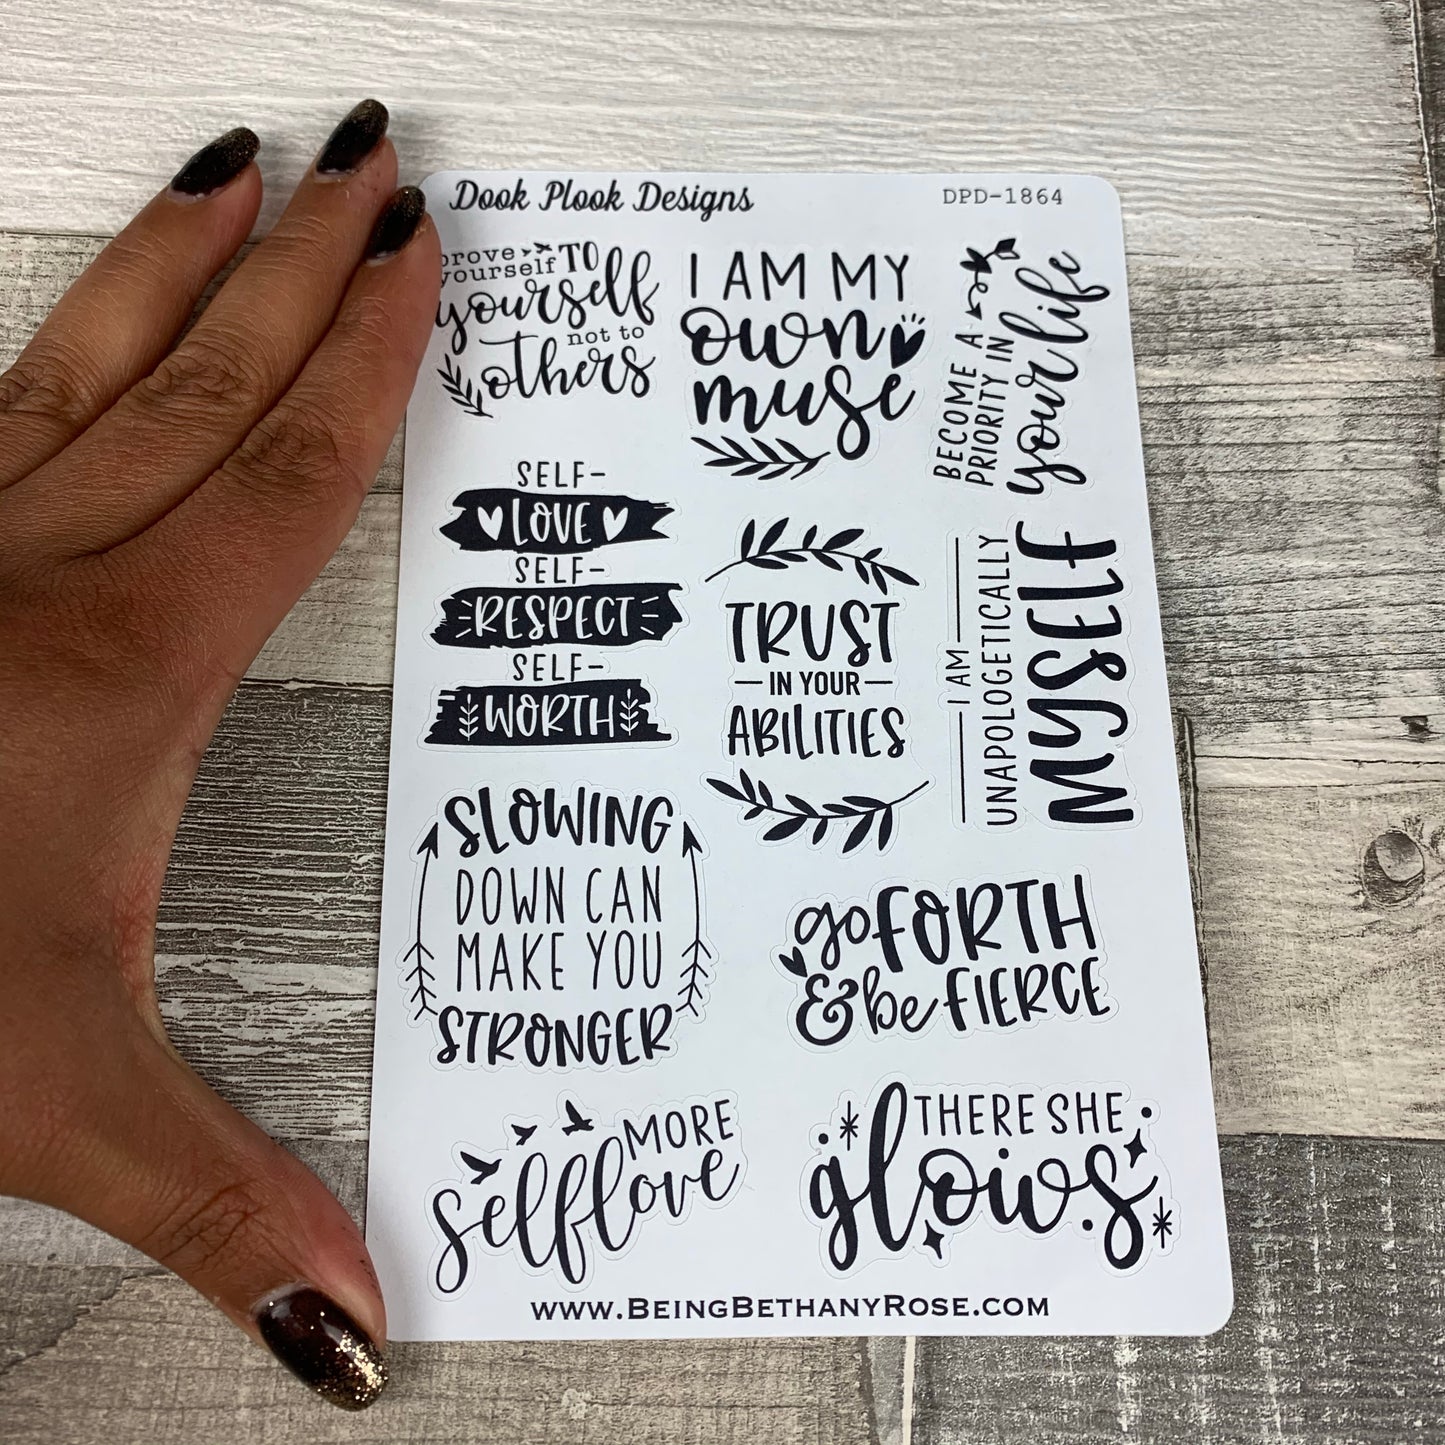 Dook Plook Designs
DPD-1864
prove
yourself TO
yourself
not to
others
I AM MY
own
muse
BECOME A
PRIORITY IN
your life
SELF-
LOVE
SELF-
RESPECT
SELF-
WORTH
TRUST
IN YOUR
ABILITIES
I AM
UNAPOLOGETICALLY
MYSELF
SLOWING
DOWN CAN
MAKE YOU
STRONGER
go FORTH
& be FIERCE
MORE
self love
THERE SHE
glows
www.BeingBethanyRose.com